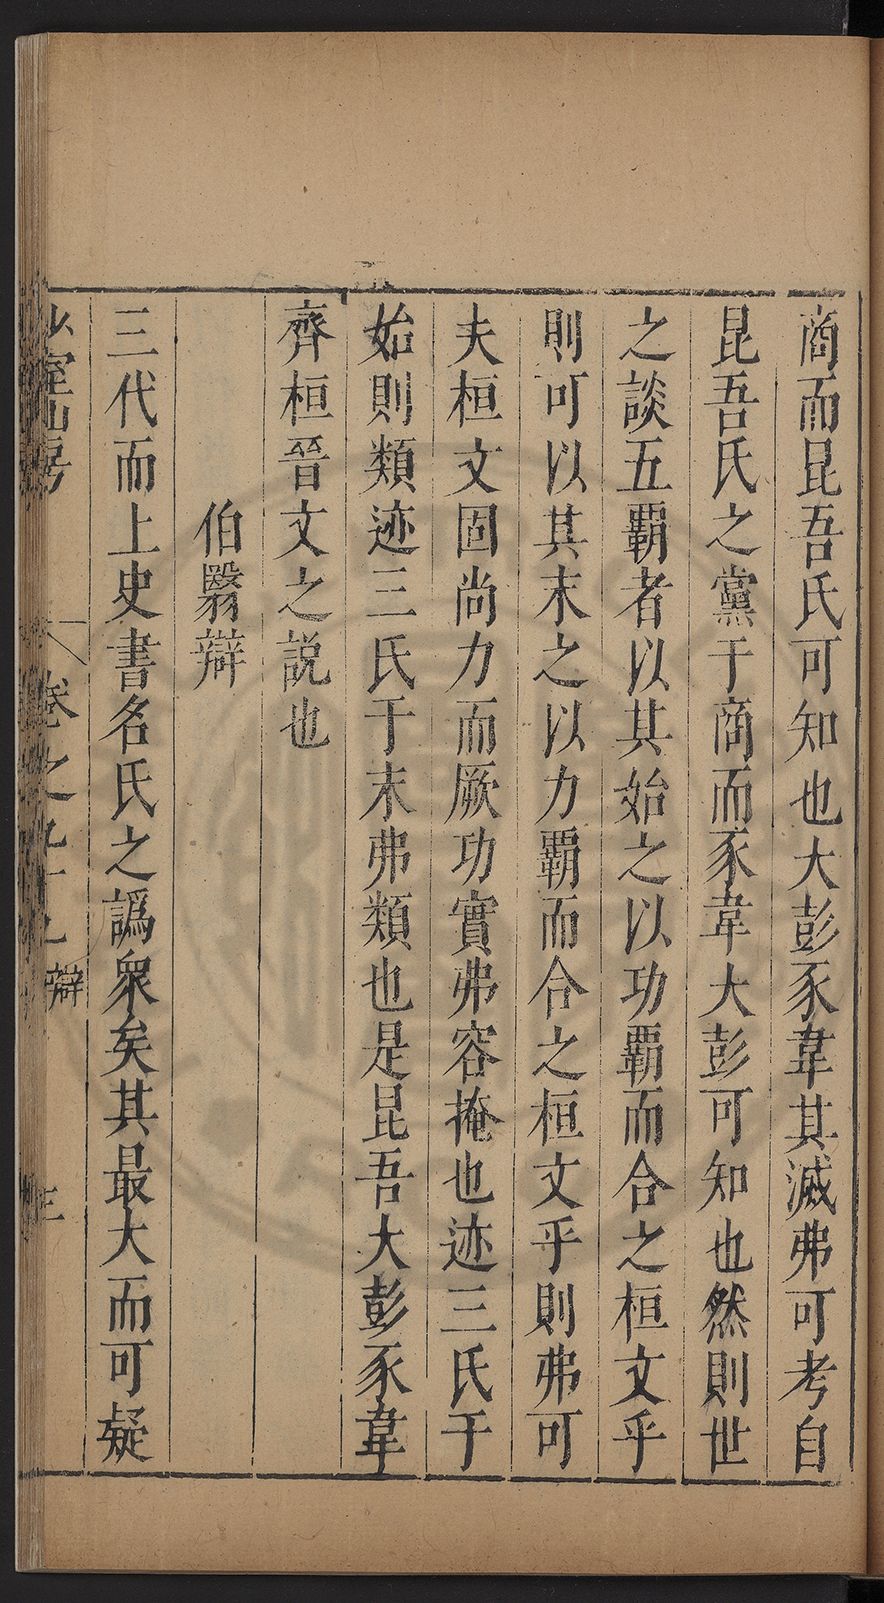 商而昆吾氏可知也大彭豕韋其滅弗可考自
昆吾氏之黨于商而豕韋大彭可知也然則世
之談五覇者以其始之以功覇而合之桓文乎
則可以其末之以力覇而合之桓文乎則弗可
夫桓文固尚力而厥功實弗容掩也迹三氏于
始則類迹三氏于末弗類也是昆吾大彭豕韋
齊桓晉文之説也
伯翳辯
三代而上史書名氏之譌衆矣其最大而可疑
少室山房 卷之九十七 辯 三